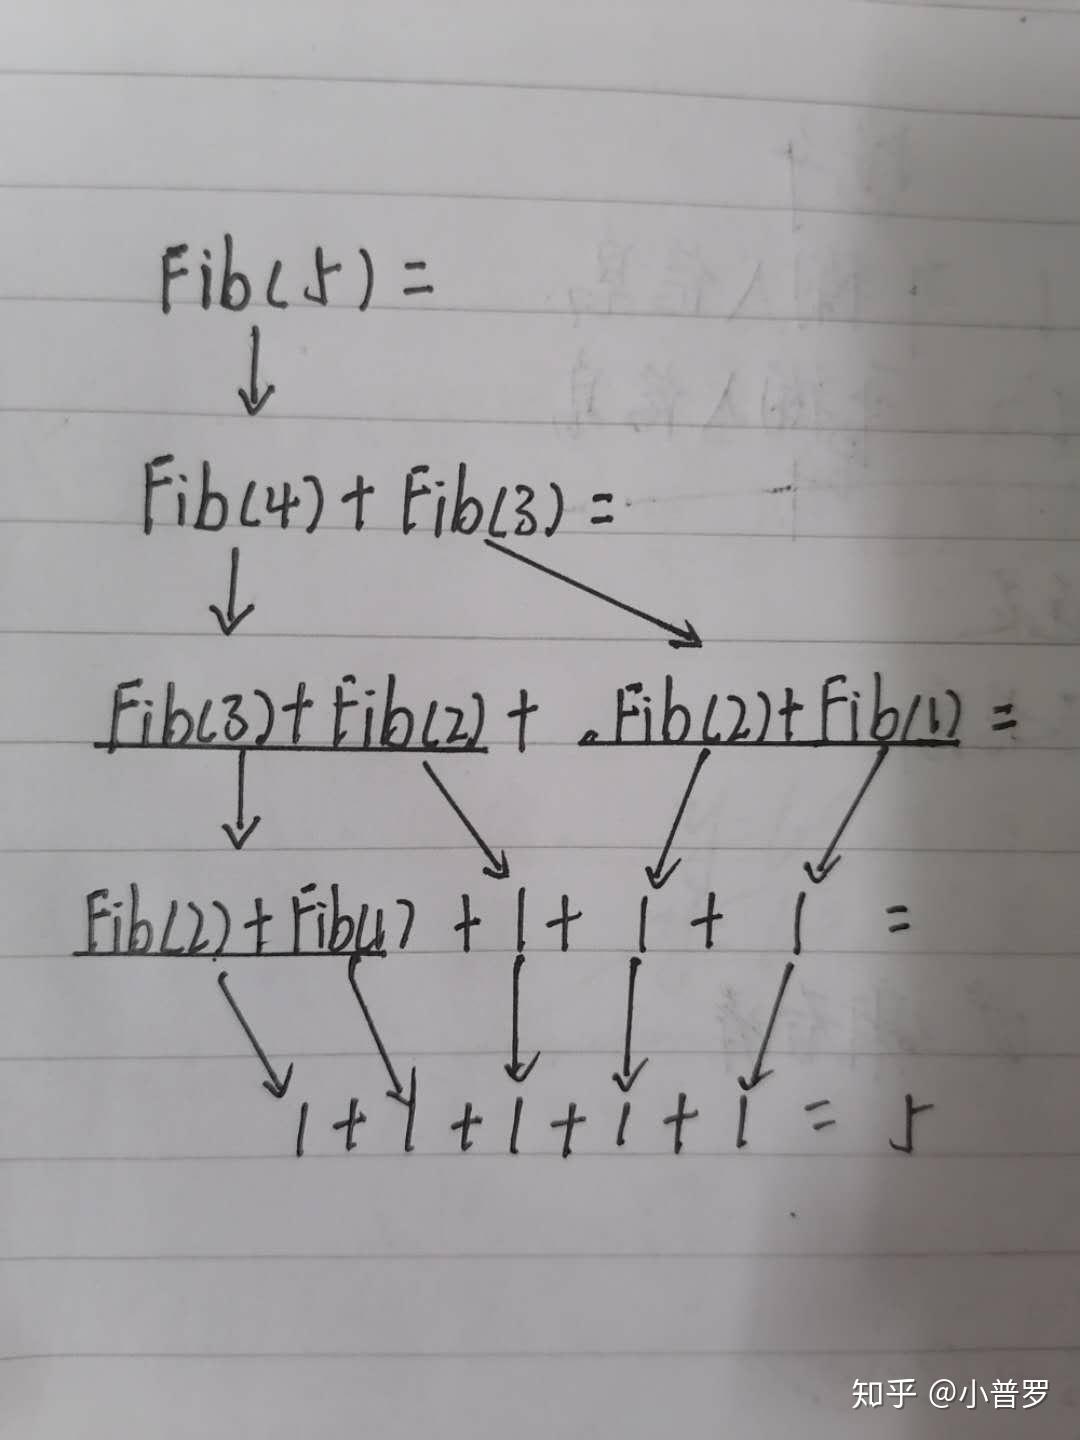 Fib(5)=
Fib(4)+Fib(3)=
Fib(3)+Fib(2)+Fib(2)+Fib(1)=
Fib(2)+Fib(1)+1+1+1=
1+1+1+1+1=5
知乎 @小普罗